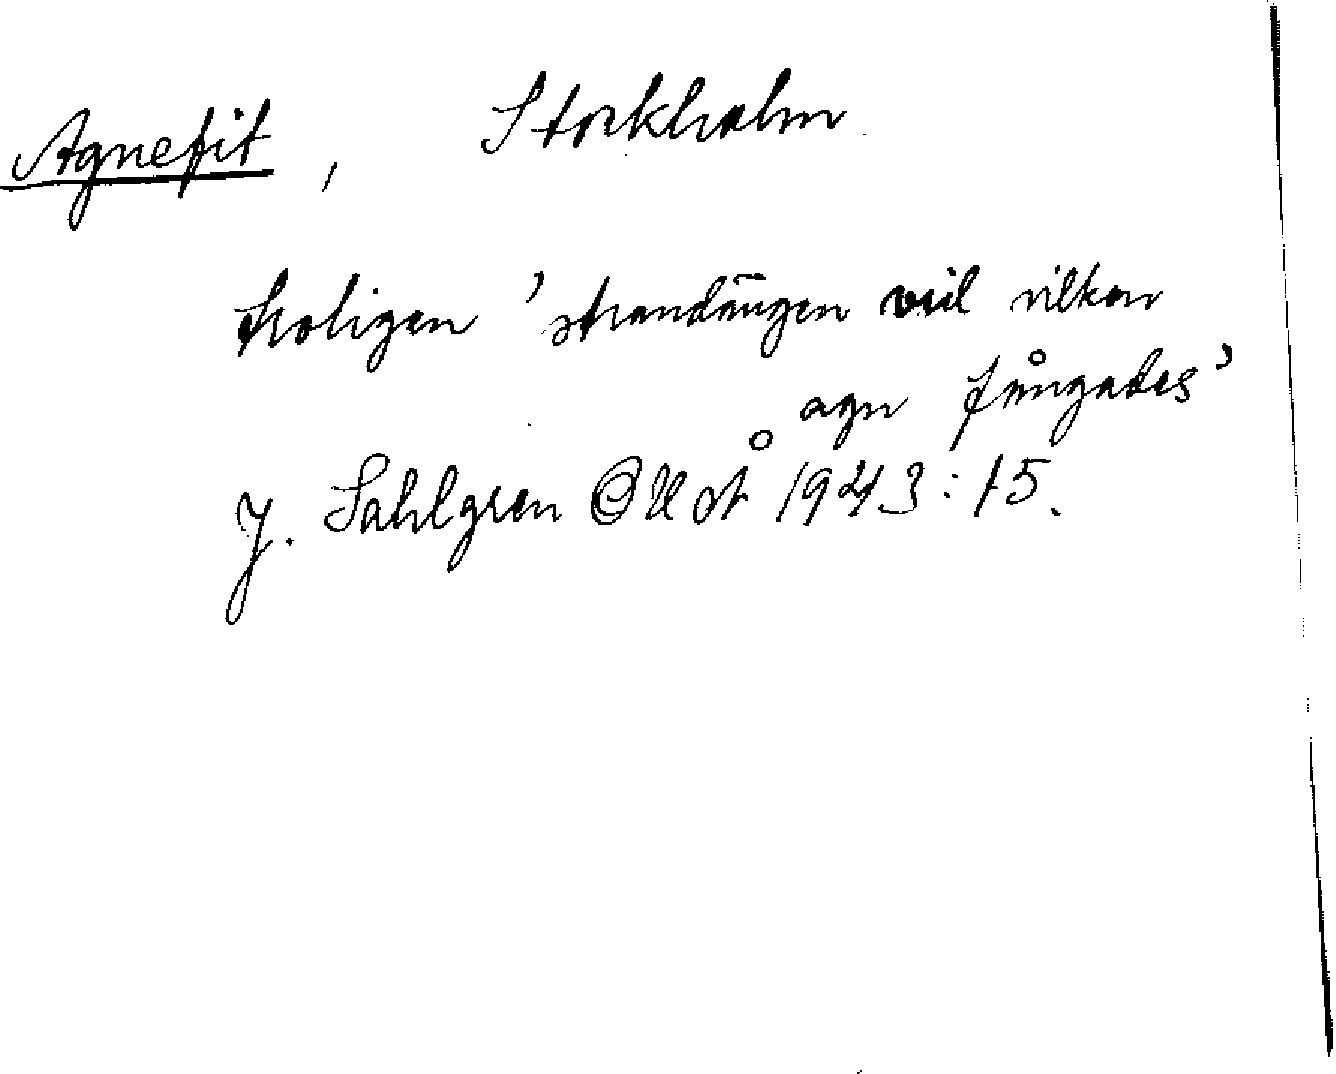 Agnefit, Stockholm
troligen 'strandängen vid vilken
agn fångades'
J. Sahlgren OUÅ 1943:15.